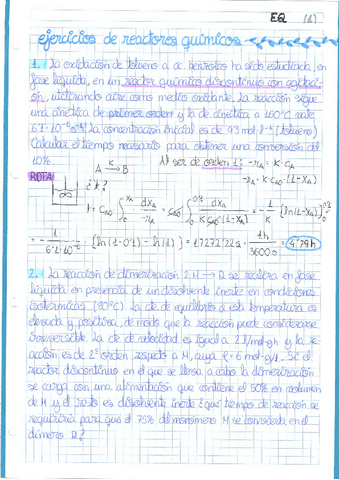 EQ (1)
ejercicios de reactores químicos
1. La oxidación de tolueno a ac. benzoico ha sido estudiada, en
fase líquida, en un reactor químico discontinuo con agitaci-
ón, utilizando aire como medio oxidante. La reacción sigue
una cinética de primer orden y la cte cinética a 160ºC vale
6'1·10⁻⁶ s⁻¹. La concentración inicial es de 9'3 mol·l⁻¹ (tolueno)
Calcular el tiempo necesario para obtener una conversión del
10%.
Al ser de orden 1: -rA = k·CA
A →k B
-rA = k·CA0·(1-XA)
RDTA:
¿t?
t = CA0 ∫₀^XA dXA/-rA = CA0 ∫₀^0'1 dXA/k·CA0·(1-XA) = -1/k [ln(1-XA)]₀^0'1 =
= -1/6'1·10⁻⁶ · [ln(1-0'1) - ln(1)] = 17272'22 s · 1h/3600 s = 4'79 h
2. La reacción de dimerización 2M → D se realiza en fase
líquida en presencia de un disolvente inerte en condiciones
isotérmicas (90ºC). La cte de equilibrio a esta temperatura es
elevada y positiva, de modo que la reacción puede considerarse
irreversible. La cte de velocidad es igual a 2 l/mol·h y la re-
acción es de 2º orden respecto a M, cuya = 6 mol/l. Si el
reactor discontinuo en el que se lleva a cabo la dimerización
se carga con una alimentación que contiene el 50% en volumen
de M y el resto es disolvente inerte ¿qué tiempo de reacción se
requeriría para que el 75% del monómero M se convierta en el
dímero D?